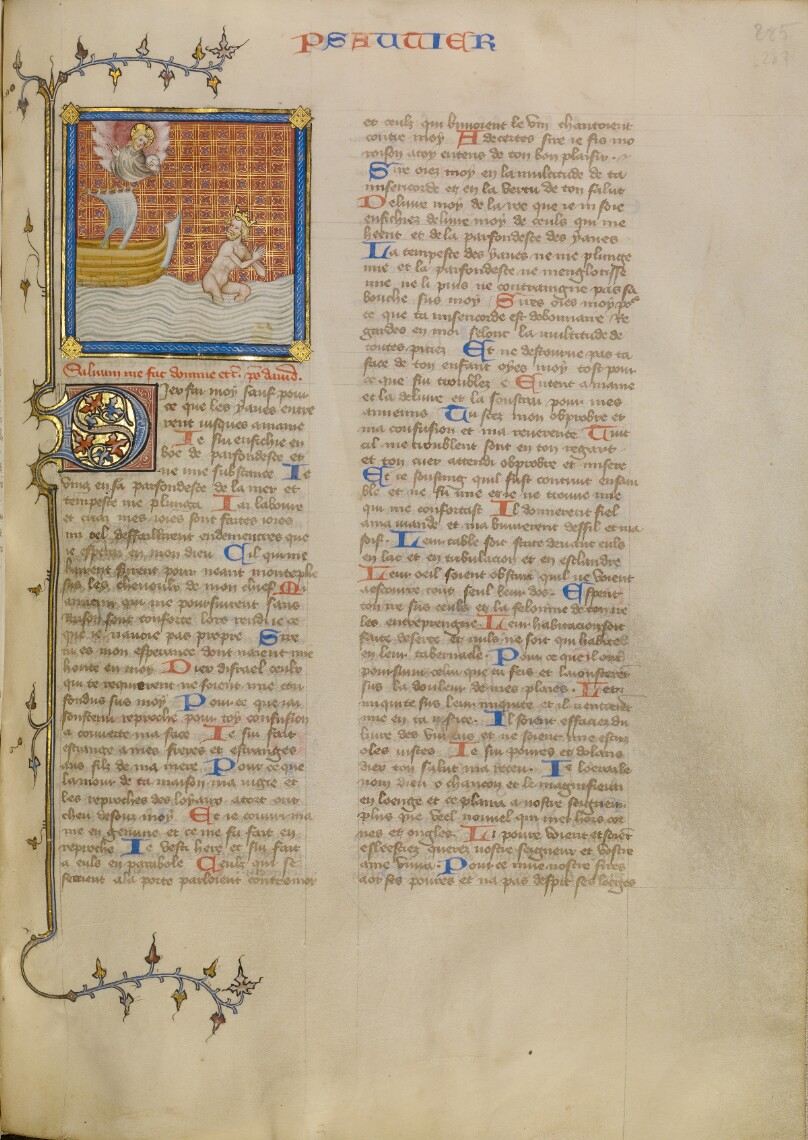 PSAUTIER
225
Salvum me fac domine etc. ps david.
Diex fai moy sauf pour
ce que les yaues entre
rent iusques a mame
Je sui enfichie en
boe de parfondesce et
ne une substance Je
ving en la parfondesce de la mer et
tempeste me plunga Jai laboure
mi oel deffaillirent endementres que
ie espere en mon dieu Cil qui me
hairent furent pour neant monteplie
sus les cheveulx de mon chief
que ie navoie pas propre Sire
tu es mon esperance dont naient mie
honte en moy Diex disrael ceulx
qui te requierent ne soient mie con
fondus sus moy Pour ce que iai
soustenu reproche pour toy confusion
a couverte ma face Je sui fait
estrange a mes freres et estranges
aus filz de ma mere Pour ce que
lamour de ta maison ma
les reproches des
cheu desour moy Et ie couvri ma
me en geune et ce me fu fait en
reproche Je vesti here et sui fait
a euls en parabole Ceulz qui se
seoient a la porte parloient contre moy
et ceulz qui buvoient le vin chantoient
contre moy Adecertes sire ie fis mo
roison a toy en tens de ton bon plaisir
Sire oiez moy en la multitude de ta
misericorde et en la verite de ton salut
Delivre moy de la boe que ie ni soie
enfichiez delivre moy de ceuls qui me
heent et de la parfondesce des yaues
La tempeste des yaues ne me plunge
mie et la parfondesce ne menglotisse
mie ne li puis ne contraingne pas sa
bouche sus moy Sires oies moy por
ce que ta misericorde est debonnaire Re
gardes en moi selonc la multitude de
toutes pitiez Et ne destourne pas ta
face de ton enfant oyes moy tost pour
ce que sui troublez Entent a mame
et la delivre et la pour mes
annemis Tu scez mon obprobre et
ma confusion et ma reverence Tuit
cil me troublent sont en ton regart
et ton cuer attendi obprobre et misere
qui me confortast Il donnerent fiel
a ma viande et ma buverent desfil et ma
soif Leur table soit faite devant euls
en lac et en tribulacion et en esclandre
Leur oeil soient obscur quil ne voient
les entreprengne Leur habitacion soit
faite deserte et nuls ne soit qui habite
en leur tabernacle Pour ce que il ont
poursuivi celui que tu feris et
sus la douleur de mes plaies
iniquite sus leur iniquite et il nentrent
mie en ta iustice Il soient effaciez du
livre des vivans et ne soient mie escris
o les iustes Je sui povres et dolans
diex ton salut ma receu Je loerai le
nom dieu o chancon et le magnifierai
en loenge et ce plaira a nostre seigneur
plus que veel nouvel qui met hors cor
nes et ongles Li povre voient et soient
esleesciez querez nostre seigneur et vostre
ame vivra Pour ce que nostre sires
a oy ses povres et na pas despit ses